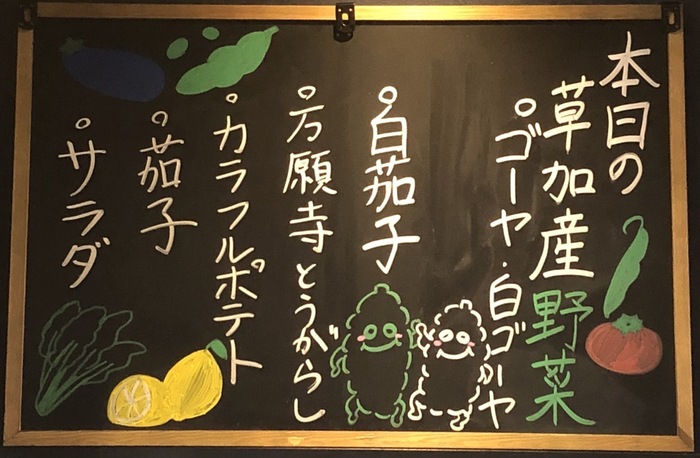 本日の
草加産野菜
○ゴーヤ・白ゴーヤ
○白茄子
○万願寺とうがらし
○カラフルポテト
○茄子
○サラダ